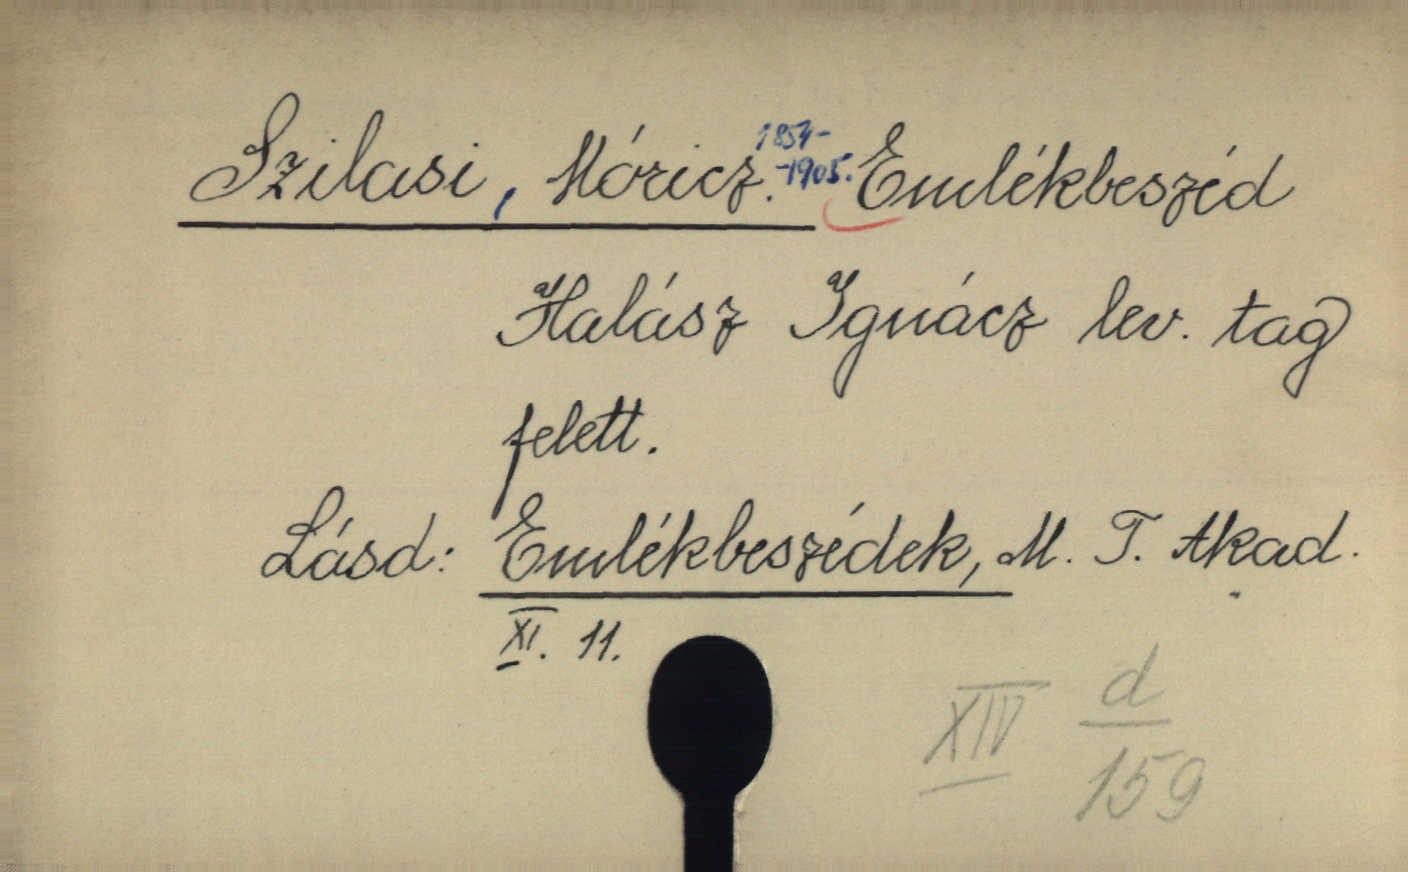 Szilasi, Móricz. 1854-
-1905. Emlékbeszéd
Halász Ignácz lev. tag
felett.
Lásd: Emlékbeszédek, M. T. Akad.
XI. 11.
XIV d
159